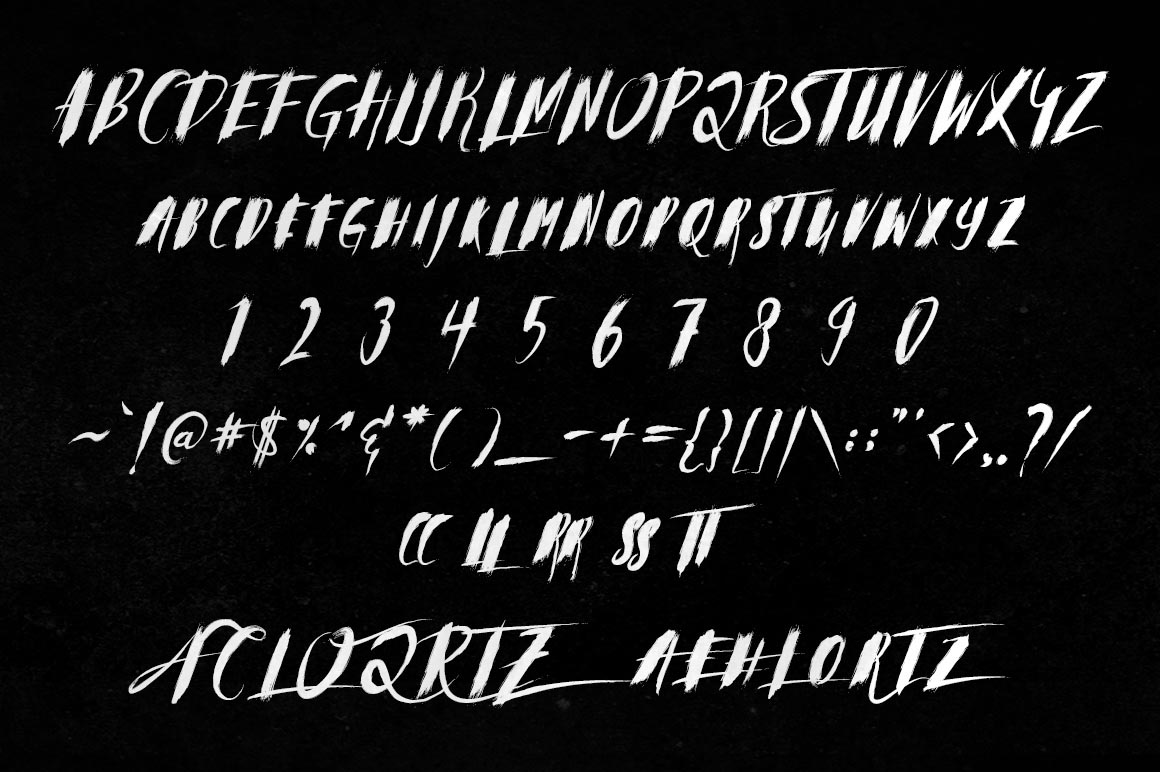 ABCDEFGHIJKLMNOPQRSTUVWXYZ
ABCDEFGHIJKLMNOPQRSTUVWXYZ
1 2 3 4 5 6 7 8 9 0
~`!@#$%^&*()_-+={}[]|\:;"'<>,.?/
CC LL RR SS TT
ACLOQRTZ AEHLORTZ